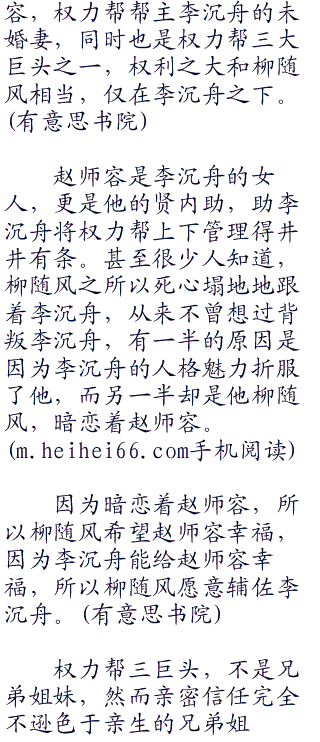 容，权力帮帮主李沉舟的未
婚妻，同时也是权力帮三大
巨头之一，权利之大和柳随
风相当，仅在李沉舟之下。
(有意思书院)
赵师容是李沉舟的女
人，更是他的贤内助，助李
沉舟将权力帮上下管理得井
井有条。甚至很少人知道，
柳随风之所以死心塌地地跟
着李沉舟，从来不曾想过背
叛李沉舟，有一半的原因是
因为李沉舟的人格魅力折服
了他，而另一半却是他柳随
风，暗恋着赵师容。
(m.heihei66.com手机阅读)
因为暗恋着赵师容，所
以柳随风希望赵师容幸福，
因为李沉舟能给赵师容幸
福，所以柳随风愿意辅佐李
沉舟。(有意思书院)
权力帮三巨头，不是兄
弟姐妹，然而亲密信任完全
不逊色于亲生的兄弟姐